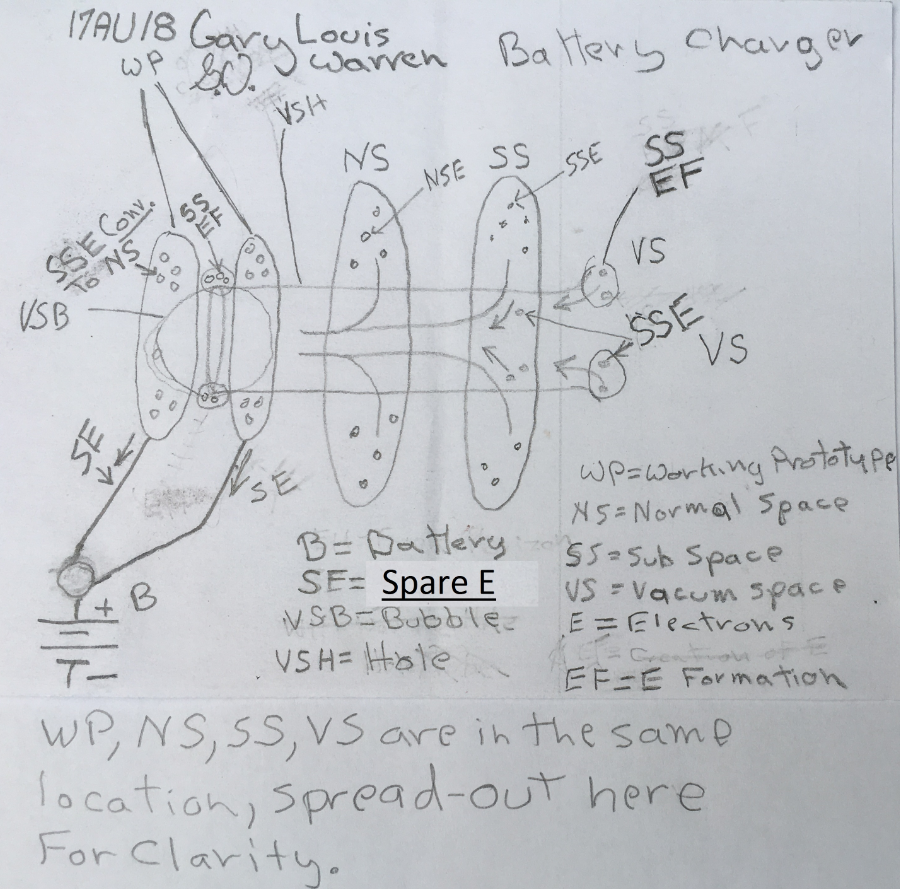 17AU18 Gary Louis Warren
Battery Charger
WP
VSH
NS
SS
NSE
SSE
SS
EF
VS
SSE Conv.
To NS
SS
EF
VSB
SSE
VS
SE
SE
B
+
T-
B= Battery
SE= Spare E
VSB=Bubble
VSH= Hole
WP=Working Prototype
NS=Normal Space
SS=Sub Space
VS=Vacum space
E=Electrons
EF=E Formation
WP, NS, SS, VS are in the same
location, spread-out here
For Clarity.